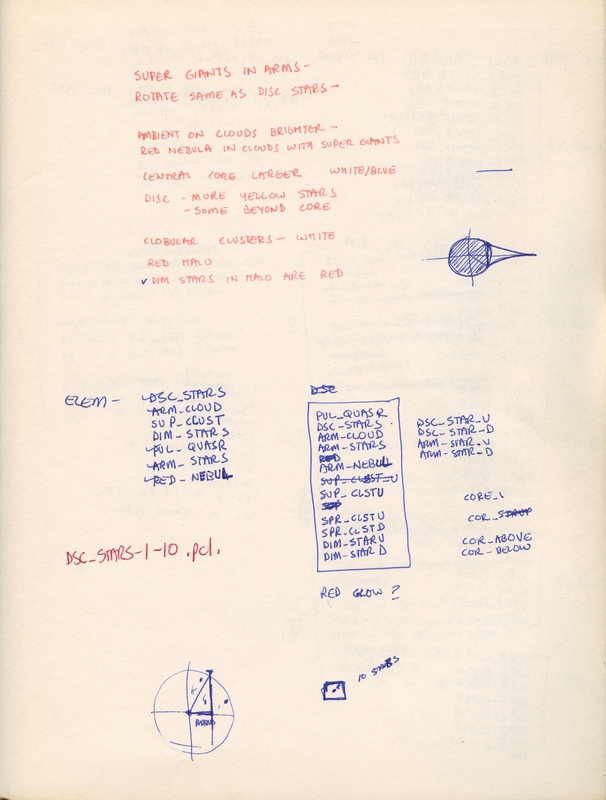 SUPER GIANTS IN ARMS-
ROTATE SAME AS DISC STARS-
AMBIENT ON CLOUDS BRIGHTER-
RED NEBULA IN CLOUDS WITH SUPER GIANTS
CENTRAL CORE LARGER WHITE/BLUE
DISC - MORE YELLOW STARS
- SOME BEYOND CORE
GLOBULAR CLUSTERS - WHITE
RED HALO
✓ DIM STARS IN HALO ARE RED
ELEM - DSC_STARS
ARM_CLOUD
SUP_CLUST
DIM_STARS
PUL_QUASR
ARM_STARS
RED_NEBUL
DSC
PUL_QUASR
DSC_STARS
ARM_CLOUD
ARM_STARS
RED
ARM_NEBUL
SUP_CLUST_U
SUP_CLSTU
SUP
SPR_CLSTU
SPR_CLSTD
DIM_STARU
DIM_STARD
DSC_STAR_U
DSC_STAR_D
ARM_STAR_U
ARM_STAR_D
CORE_
COR_
COR_ABOVE
COR_BELOW
DSC_STARS-1-10.pcl.
RED GLOW?
10 STARS